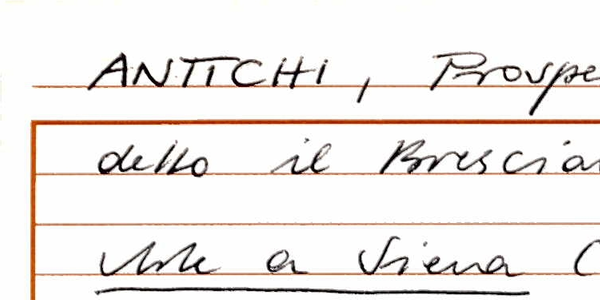 ANTICHI, Prospe
detto il Brescia
a Siena (